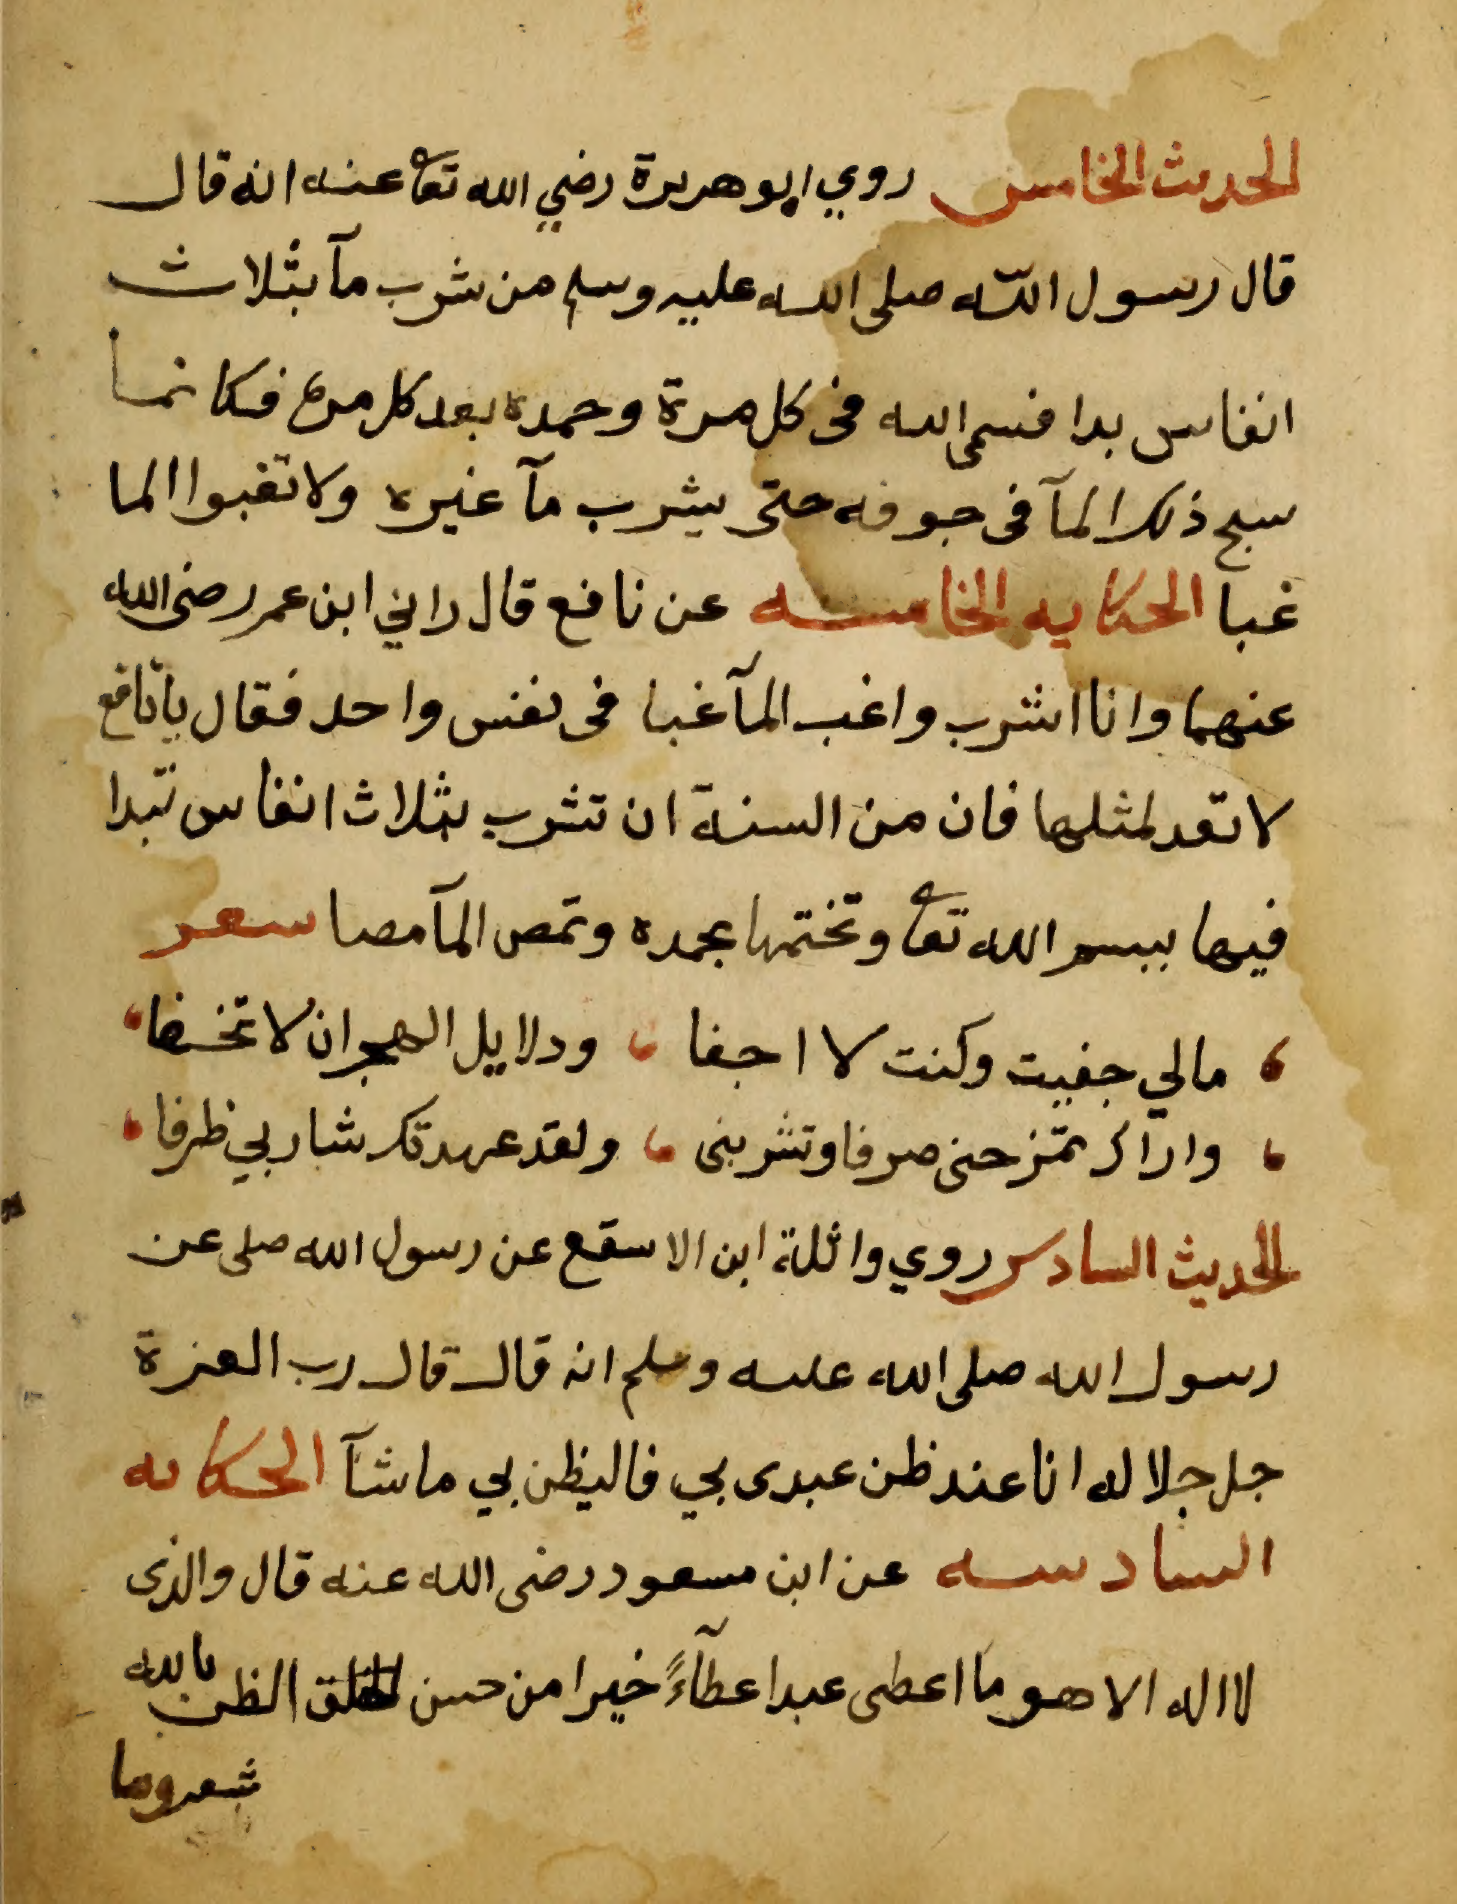 الحديث الخامس روي ابو هريرة رضي الله تعا عنه انه قال
قال رسول الله صلى الله عليه وسلم من شرب مآ بثلاث
انفاس بدا فسمى الله فى كل مرة وحمده بعد كل مرة فكانما
سبح ذلك المآ فى جوفه حتى يشرب مآ غيره ولا تغبوا الما
غبا الحكايه الخامسه عن نافع قال راني ابن عمر رضى الله
عنهما وانا اشرب واغب المآ غبا فى نفس واحد فقال يا نافع
لا تعد لمثلها فان من السنة ان تشرب بثلاث انفاس تبدا
فيها ببسم الله تعا وتختمها بحمده وتمص المآ مصا سعر
مالي جفيت وكنت لا اجفا ودلايل الهجران لا تخفا
واراك تمزحنى صرفا وتشربنى ولقد عهدتك شاربي ظرفا
الحديث السادس روي واثلة ابن الاسقع عن رسول الله صلى عن
رسول الله صلى الله عليه وسلم انه قال قال رب العزة
جل جلاله انا عند ظن عبدى بي فاليظن بي ما شآ الحكايه
السادسه عن ابن مسعود رضى الله عنه قال والذى
لا اله الا هو ما اعطى عبدا عطآءً خيرا من حسن الظن بالله
شعر وما